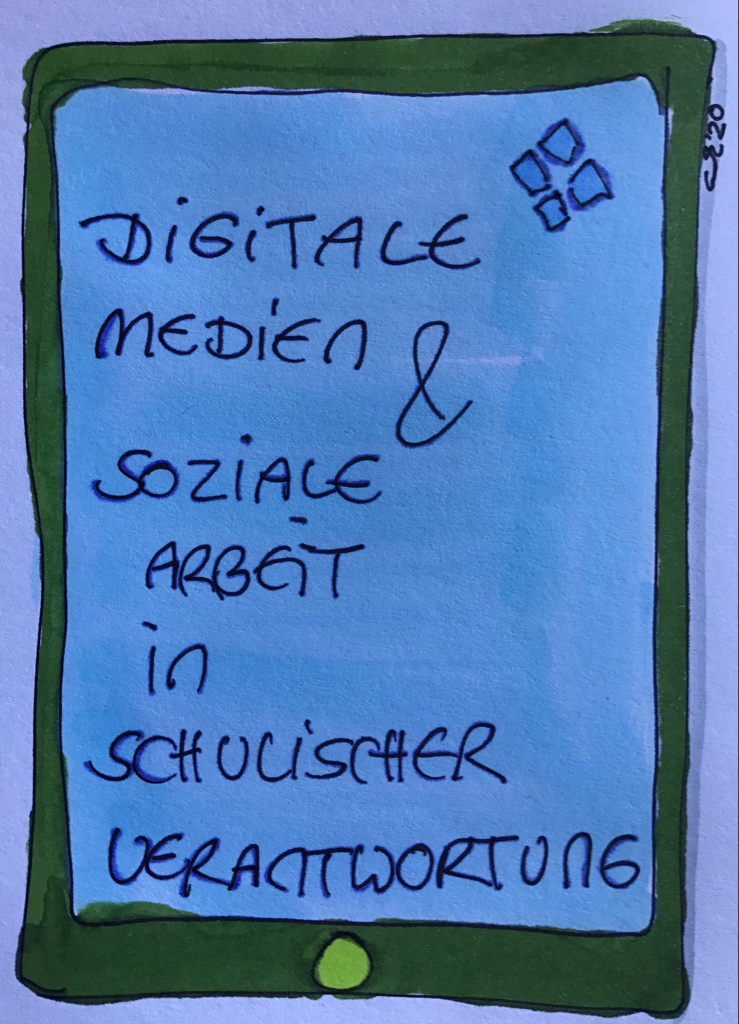 DiGiTALE
MEDiEN &
SOZiALE
ARBEiT
in
SCHULiSCHER
VERANTWORTUNG